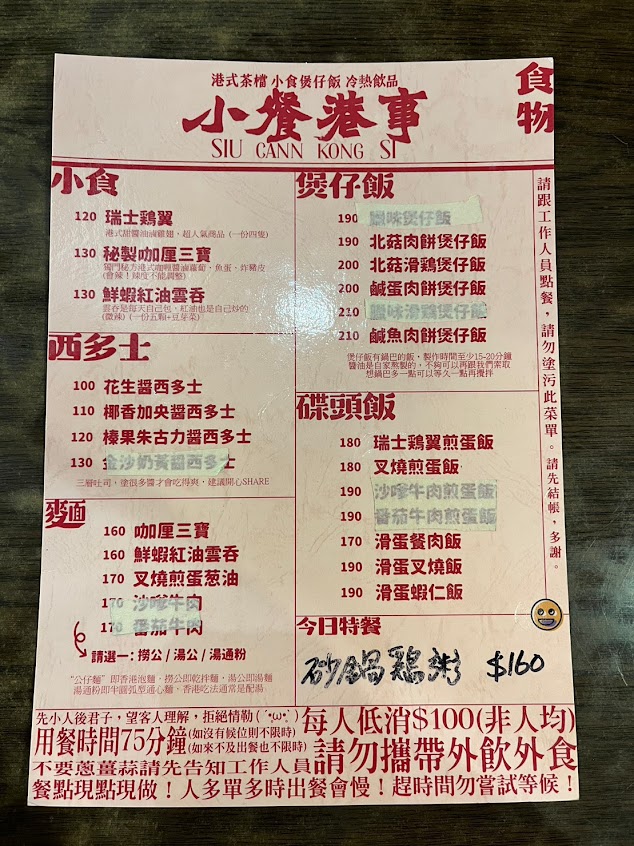 港式茶檔 小食煲仔飯 冷熱飲品
小餐港事
SIU CANN KONG SI
食物
小食
120 瑞士鷄翼
港式甜醬油滷雞翅、超人氣商品 (一份四隻)
130 秘製咖厘三寶
獨門秘方港式咖喱醬滷蘿蔔、魚蛋、炸豬皮
(會辣！辣度不能調整)
130 鮮蝦紅油雲吞
雲吞是每天自己包、紅油也是自己炒的
(微辣) (一份五顆+豆芽菜)
西多士
100 花生醬西多士
110 椰香加央醬西多士
120 榛果朱古力醬西多士
130 金沙奶黃醬西多士
三層吐司，塗很多醬才會吃得爽，建議開心SHARE
麥面
160 咖厘三寶
160 鮮蝦紅油雲吞
170 叉燒煎蛋葱油
170 沙嗲牛肉
170 番茄牛肉
請選一：撈公 / 湯公 / 湯通粉
“公仔麵”即香港泡麵，撈公即乾拌麵，湯公即湯麵
湯通即半圓弧型通心麵，香港吃法通常是配湯
煲仔飯
190 臘味煲仔飯
190 北菇肉餅煲仔飯
200 北菇滑鷄煲仔飯
200 鹹蛋肉餅煲仔飯
210 臘味滑鷄煲仔飯
210 鹹魚肉餅煲仔飯
煲仔飯有鍋巴的飯，製作時間至少15-20分鐘
醬油是自家熬製的，不夠可以再跟我們索取
想鍋巴多一點可以等久一點再攪拌
碟頭飯
180 瑞士鷄翼煎蛋飯
180 叉燒煎蛋飯
190 沙嗲牛肉煎蛋飯
190 番茄牛肉煎蛋飯
170 滑蛋餐肉飯
190 滑蛋叉燒飯
190 滑蛋蝦仁飯
今日特餐
砂鍋鷄粥 $160
請跟工作人員點餐，請勿塗污此菜單。請先結帳，多謝。
先小人後君子，望客人理解，拒絕情勒(´･ω･`)
每人低消$100(非人均)
用餐時間75分鐘(如沒有候位則不限時)
(如來不及出餐也不限時)
請勿攜帶外飲外食
不要蔥薑蒜請先告知工作人員
餐點現點現做！人多單多時出餐會慢！趕時間勿嘗試等候！